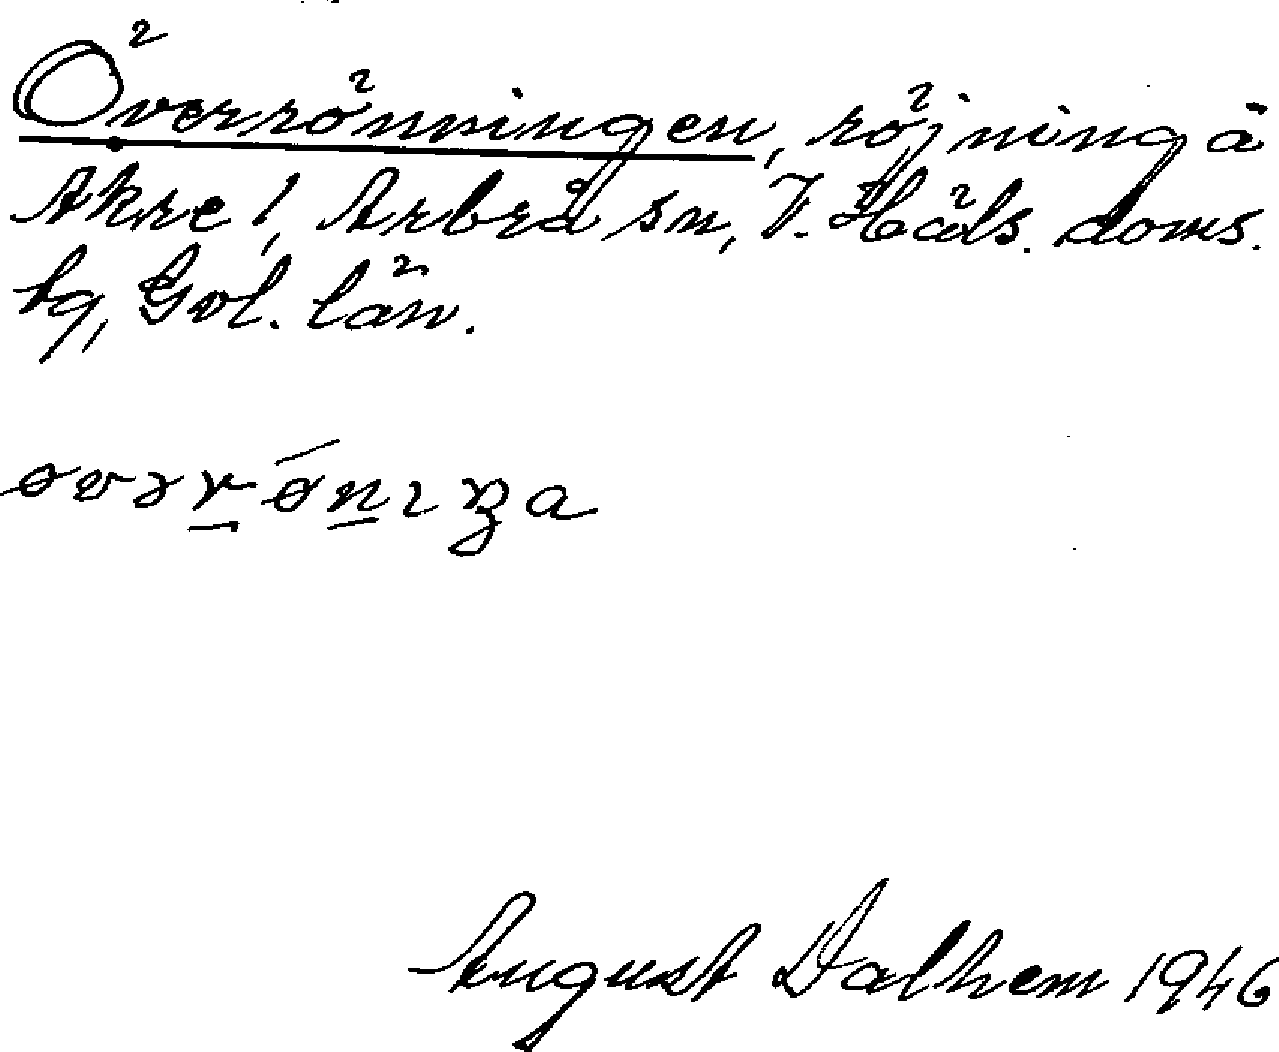 Överrönningen, röjning å
Åkre!, Arbrå sn, V. Häls. doms.
hg, Gvl. län.
øvərǿnıŋa
August Dalhem 1946